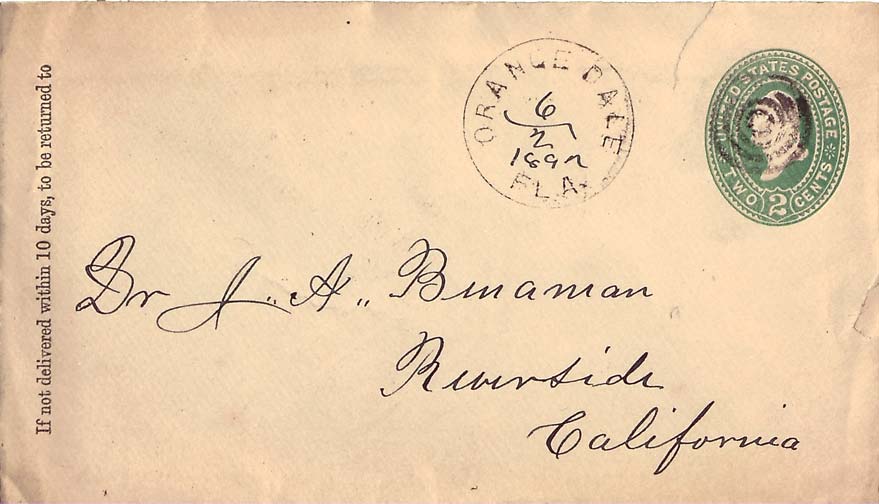 If not delivered within 10 days, to be returned to
ORANGE DALE
6
2
1892
FLA.
UNITED STATES POSTAGE
TWO 2 CENTS
Dr J. A. Binaman
Riverside
California